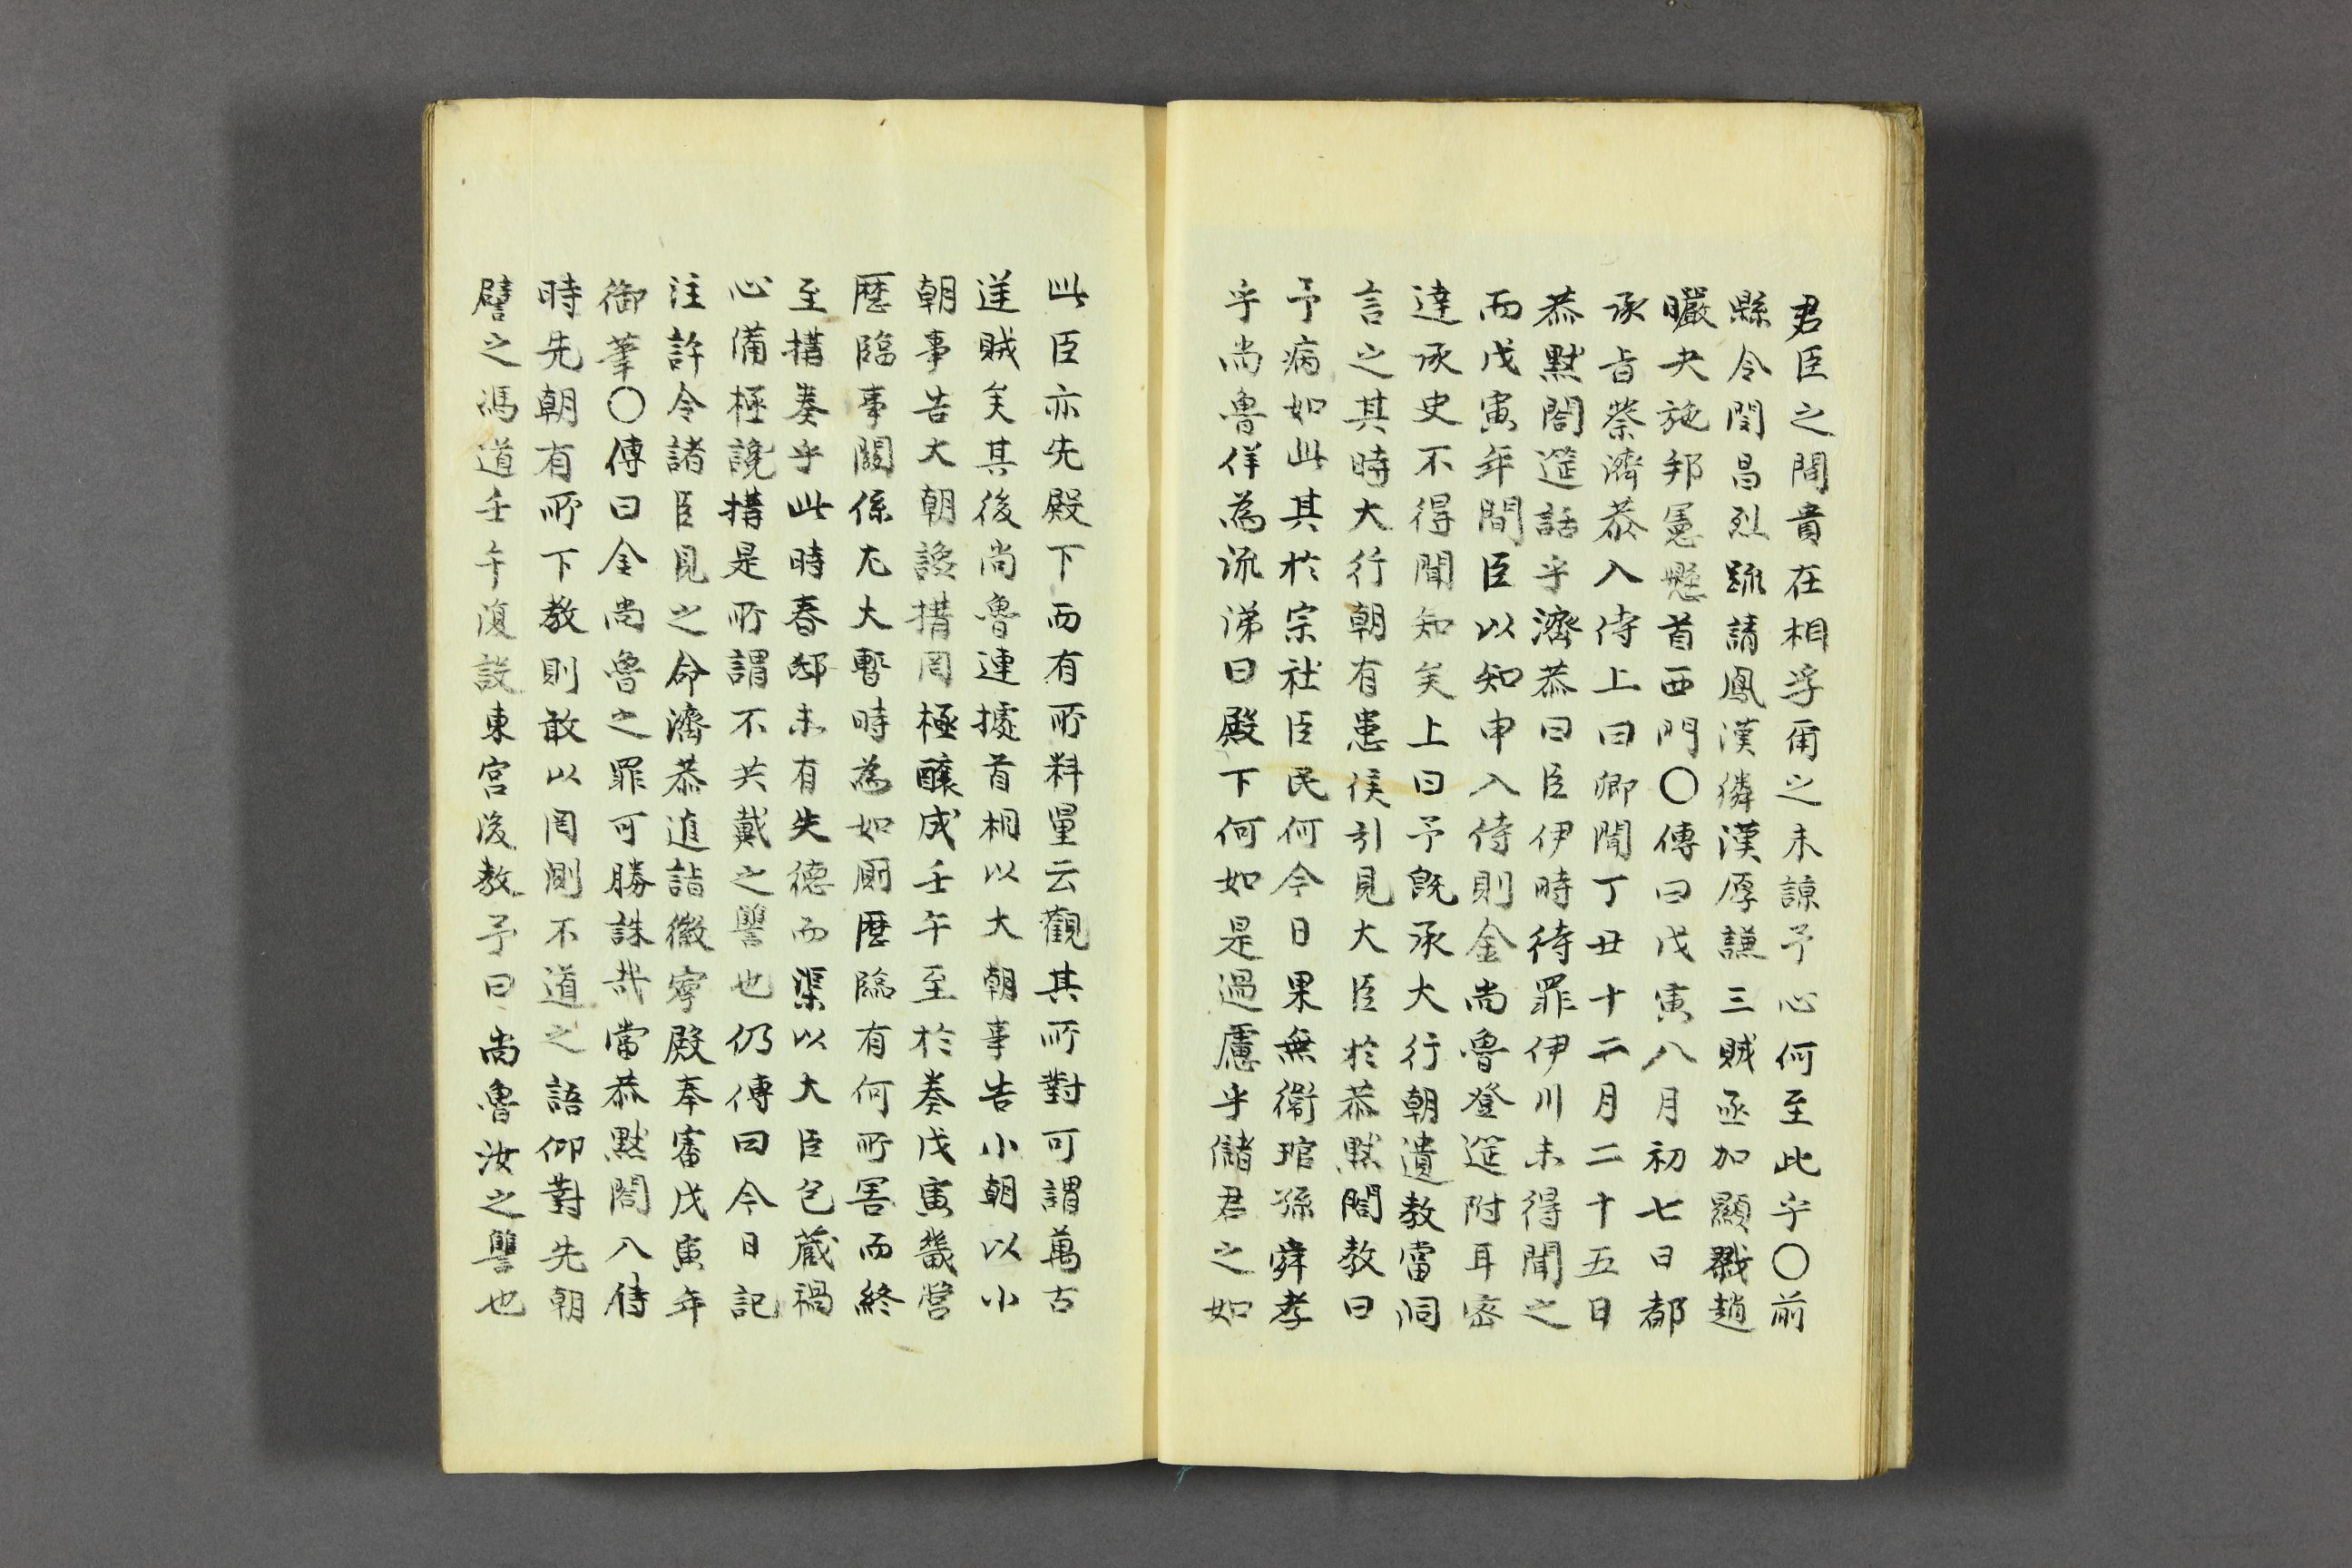 君臣之間貴在相孚爾之未諒予心何至此乎〇前
縣令閔昌烈䟽請鳳漢僯漢厚謙三賊亟加顯戮趙
曮夬施邦憲懸首西門〇傳曰戊寅八月初七日都
承旨蔡濟恭入侍上曰卿聞丁丑十二月二十五日
恭默閤筵話乎濟恭曰臣伊時待罪伊川未得聞之
而戊寅年間臣以知申入侍則金尚魯登筵附耳密
達承史不得聞知矣上曰予旣承大行朝遺教當洞
言之其時大行朝有患候引見大臣於恭默閤教曰
予病如此其於宗社臣民何今日果無衛琯孫舜孝
乎尚魯佯為流涕曰殿下何如是過慮乎儲君之如
此臣亦先殿下而有所料量云觀其所對可謂萬古
逆賊矣其後尚魯連據首相以大朝事告小朝以小
朝事告大朝讒搆罔極釀成壬午至於奏戊寅畿營
歷臨事關係尢大暫時為如厠歷臨有何所害而終
至搆奏乎此時春邸未有失德而渠以大臣包藏禍
心備極讒搆是所謂不共戴之讐也仍傳曰今日記
注許令諸臣見之命濟恭進詣徽寧殿奉審戊寅年
御筆〇傳曰金尚魯之罪可勝誅哉當恭默閤入侍
時先朝有所下教則敢以罔測不道之語仰對先朝
譬之馮道壬午復設東宮後教予曰尚魯汝之讐也